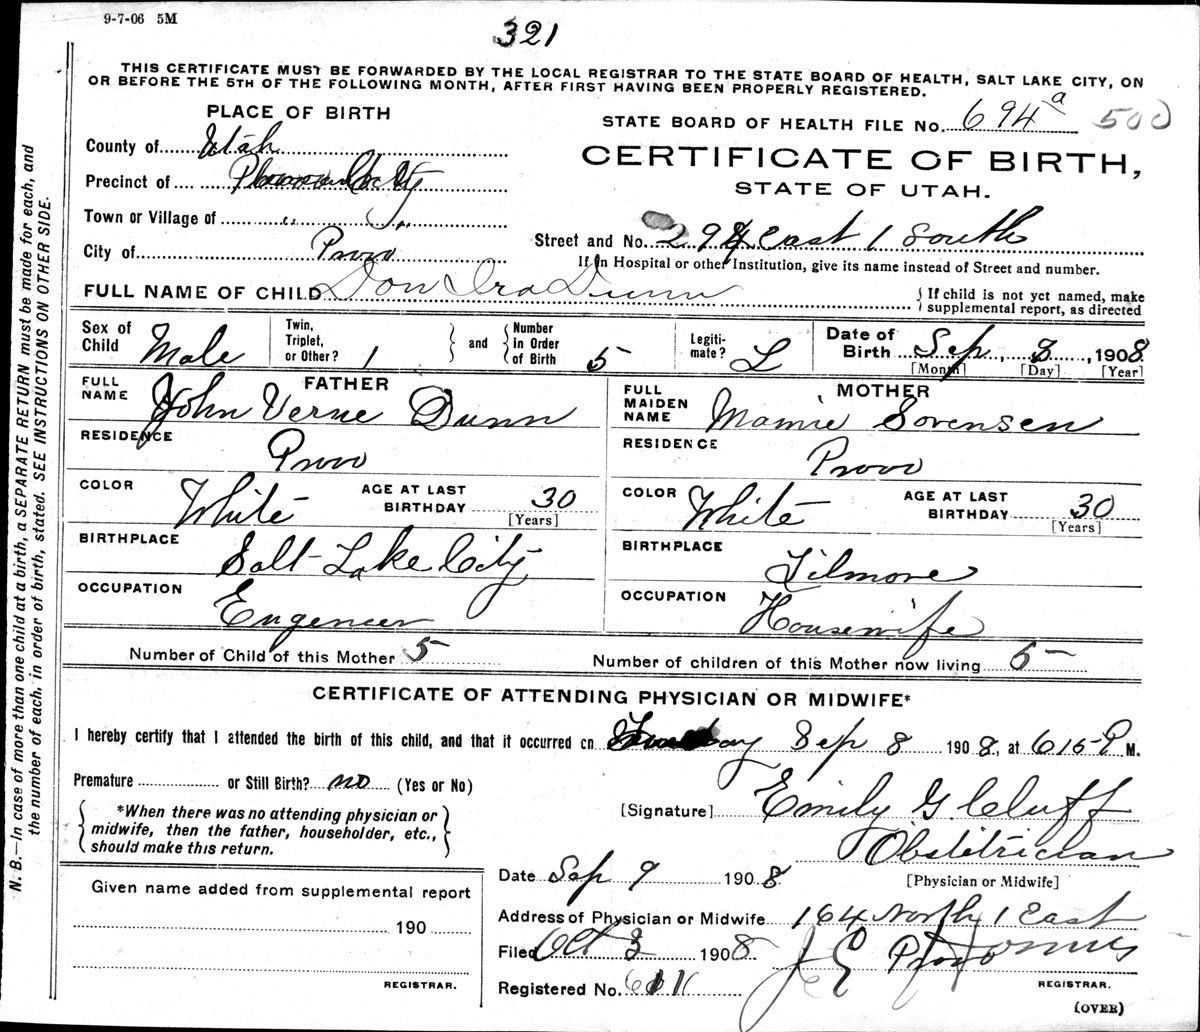 9-7-06 5M
321
THIS CERTIFICATE MUST BE FORWARDED BY THE LOCAL REGISTRAR TO THE STATE BOARD OF HEALTH, SALT LAKE CITY, ON
OR BEFORE THE 5TH OF THE FOLLOWING MONTH, AFTER FIRST HAVING BEEN PROPERLY REGISTERED.
PLACE OF BIRTH
STATE BOARD OF HEALTH FILE No. 694a 500
County of Utah
CERTIFICATE OF BIRTH,
STATE OF UTAH.
Precinct of
Town or Village of "
Street and No. 294 East 1 South
City of Provo
If in Hospital or other Institution, give its name instead of Street and number.
FULL NAME OF CHILD Don Ira Dunn { If child is not yet named, make
supplemental report, as directed
Sex of Child Male Twin, Triplet, or Other? 1 } and { Number in Order of Birth 5 Legiti-mate? L Date of Birth Sep, 8, 1908.
[Month] [Day] [Year]
FATHER MOTHER
FULL NAME John Verne Dunn FULL MAIDEN NAME Mamie Sorensen
RESIDENCE Provo RESIDENCE Provo
COLOR White AGE AT LAST BIRTHDAY 30 [Years] COLOR White AGE AT LAST BIRTHDAY 30 [Years]
BIRTHPLACE Salt Lake City BIRTHPLACE Filmore
OCCUPATION Engeneer OCCUPATION Housewife
Number of Child of this Mother 5 Number of children of this Mother now living 5
CERTIFICATE OF ATTENDING PHYSICIAN OR MIDWIFE*
I hereby certify that I attended the birth of this child, and that it occurred on Sep 8 1908, at 615 P M.
Premature or Still Birth? no (Yes or No)
{ *When there was no attending physician or
midwife, then the father, householder, etc.,
should make this return. }
[Signature] Emily G. Cluff
Obstitrician
[Physician or Midwife]
Date Sep 9 1908.
Address of Physician or Midwife 164 North 1 East
Provo
Filed Oct 3 1908. J E
REGISTRAR.
Registered No.
Given name added from supplemental report
190
REGISTRAR.
(OVER)
N. B.—In case of more than one child at a birth, a SEPARATE RETURN must be made for each, and
the number of each, in order of birth, stated. SEE INSTRUCTIONS ON OTHER SIDE.